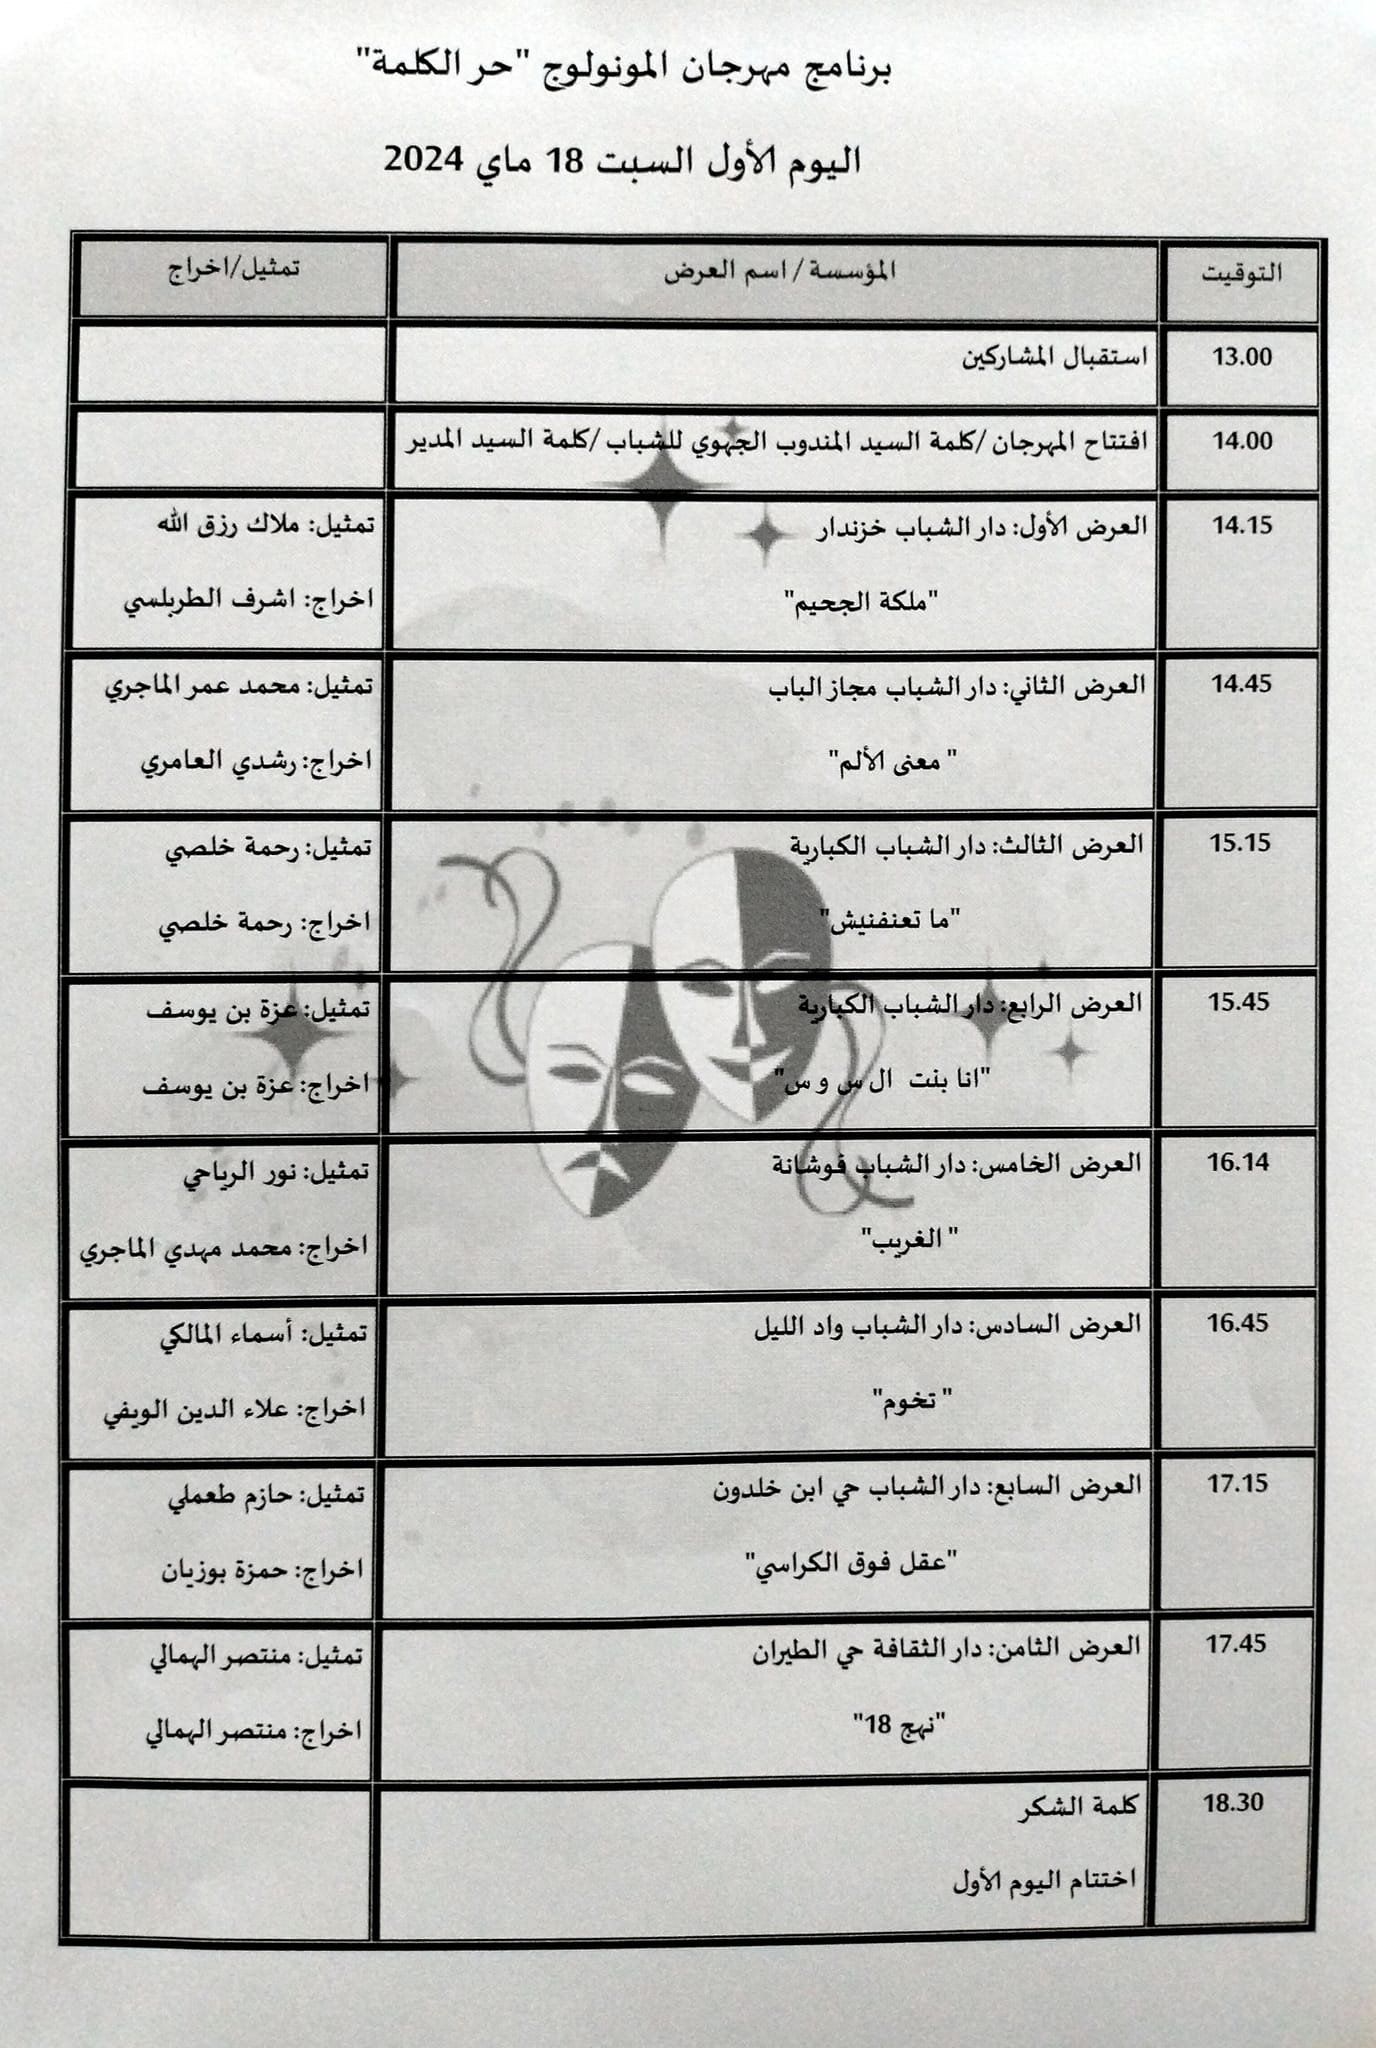 برنامج مهرجان المونولوج "حر الكلمة"
اليوم الأول السبت 18 ماي 2024
التوقيت المؤسسة / اسم العرض تمثيل/اخراج
13.00 استقبال المشاركين
14.00 افتتاح المهرجان /كلمة السيد المندوب الجهوي للشباب /كلمة السيد المدير
14.15 العرض الأول: دار الشباب خزندار تمثيل: ملاك رزق الله
"ملكة الجحيم" اخراج: اشرف الطربلسي
14.45 العرض الثاني: دار الشباب مجاز الباب تمثيل: محمد عمر الماجري
" معنى الألم" اخراج: رشدي العامري
15.15 العرض الثالث: دار الشباب الكبارية تمثيل: رحمة خلصي
"ما تعنفنيش" اخراج: رحمة خلصي
15.45 العرض الرابع: دار الشباب الكبارية تمثيل: عزة بن يوسف
"انا بنت ال س و س" اخراج: عزة بن يوسف
16.14 العرض الخامس: دار الشباب فوشانة تمثيل: نور الرياحي
" الغريب" اخراج: محمد مهدي الماجري
16.45 العرض السادس: دار الشباب واد الليل تمثيل: أسماء المالكي
" تخوم" اخراج: علاء الدين الويفي
17.15 العرض السابع: دار الشباب حي ابن خلدون تمثيل: حازم طعملي
"عقل فوق الكراسي" اخراج: حمزة بوزيان
17.45 العرض الثامن: دار الثقافة حي الطيران تمثيل: منتصر الهمالي
"نهج 18" اخراج: منتصر الهمالي
18.30 كلمة الشكر
اختتام اليوم الأول